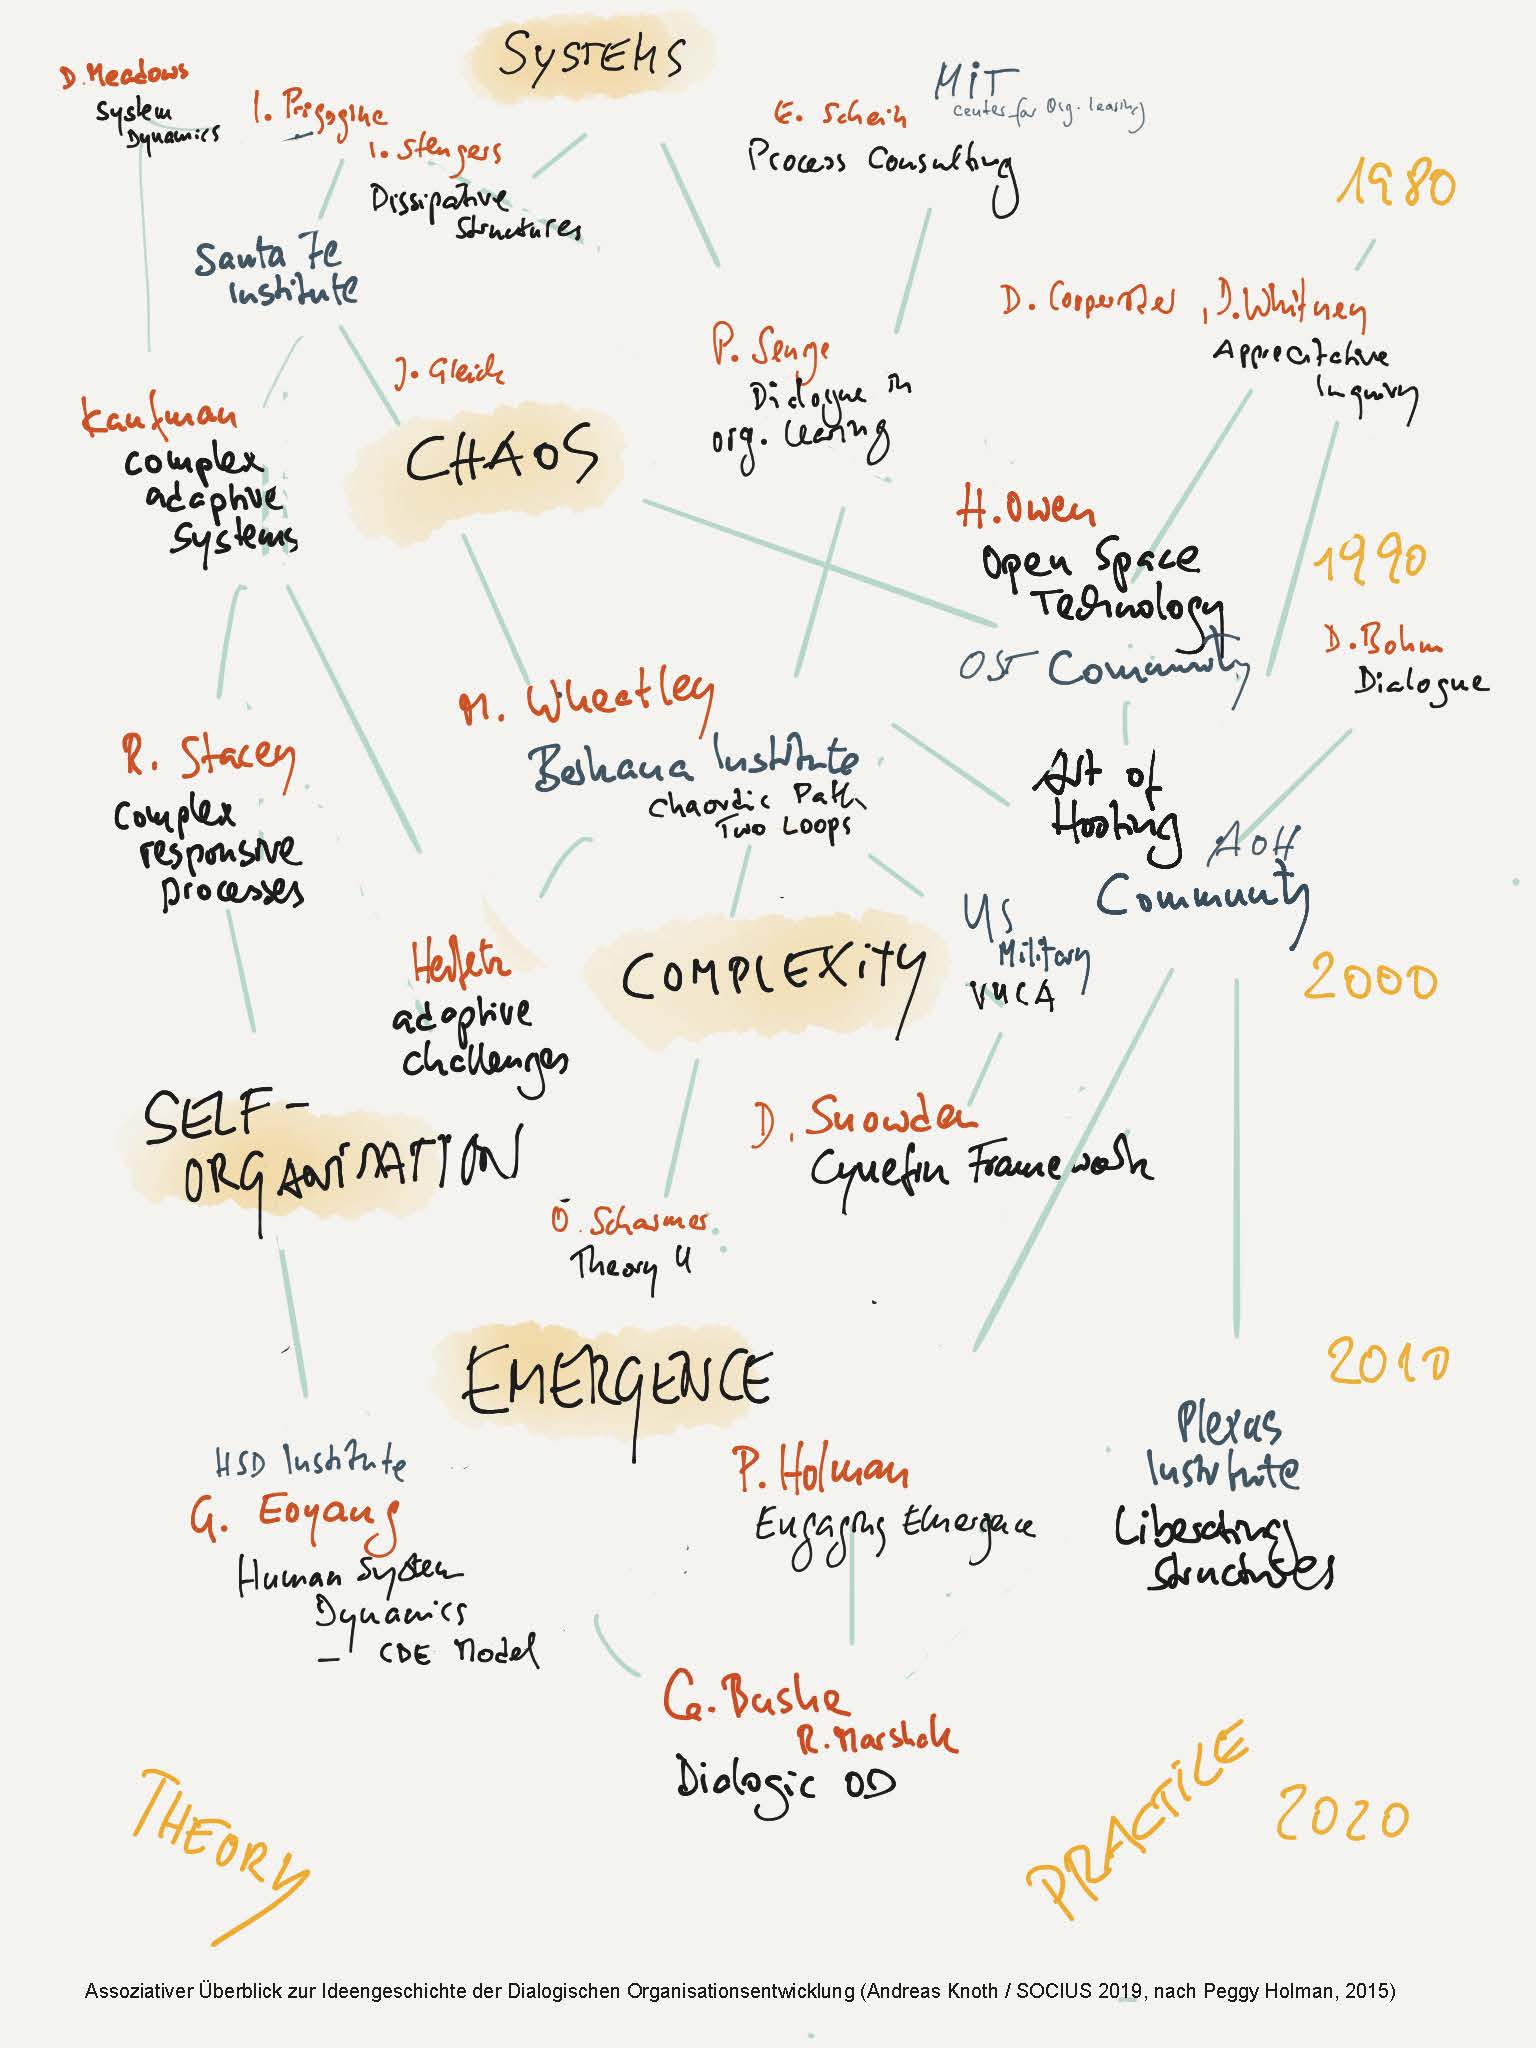 SYSTEMS
D. Meadows
System
Dynamics
I. Prigogine
I. Stengers
Dissipative
Structures
E. Schein
Process Consulting
MiT
center for Org. learing
1980
Santa Fe
Institute
D. Copperrider, D. Whitney
Appreciative
Inquiry
J. Gleick
CHAOS
P. Senge
Dialogue in
org. learing
Kaufman
complex
adaptive
systems
H. Owen
Open Space
Technology
OST Community
1990
D. Bohm
Dialogue
M. Wheatley
Berkana Institute
Chaordic Path,
Two Loops
R. Stacey
Complex
responsive
processes
Art of
Hosting
AoH
Community
Heifetz
adaptive
challenges
COMPLEXiTY
US
Military
VUCA
2000
SELF-
ORGANISATION
D. Snowden
Cynefin Framework
O. Scharmer
Theory U
EMERGENCE
2010
HSD Institute
G. Eoyang
Human System
Dynamics
– CDE Model
P. Holman
Engaging Emergence
Plexus
Institute
Liberating
Structures
G. Bushe
R. Marshak
Dialogic OD
THEORY
PRACTICE
2020
Assoziativer Überblick zur Ideengeschichte der Dialogischen Organisationsentwicklung (Andreas Knoth / SOCIUS 2019, nach Peggy Holman, 2015)